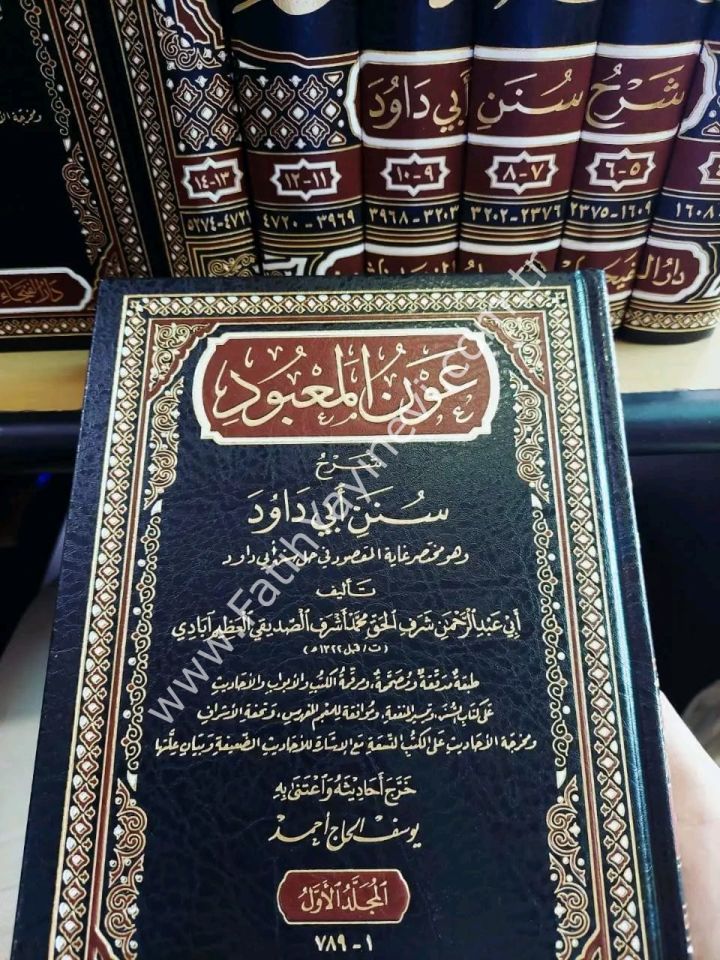 شرح سنن أبي داود
١٣-١٤
١١-١٢
٩-١٠
٧-٨
٥-٦
٤٧٢١-٥٢٧٤
٣٩٦٩-٤٧٢٠
٣٢٠٣-٣٩٦٨
٢٣٧٦-٣٢٠٢
١٦٠٩-٢٣٧٥
١٦٠٨
دار الفيحاء
عَوْنُ المَعْبُود
شَرْحُ
سُنَنِ أَبِي دَاوُدَ
وهو مختصر غاية المقصود في حل سنن أبي داود
تَأليف
أبي عَبدِ الرَّحْمٰنِ شَرَفِ الحَقِّ مُحَمَّد أشْرَف الصِّدِّيقي العَظِيم آبَادِي
(ت/ قبل ١٣٢٢ هـ)
طبعة مدققة ومصححة، ومرقمة الكتب والأبواب والأحاديث
على كتاب السنن، وتيسير المنفعة، وموافقة للمعجم المفهرس، وتحفة الأشراف
ومخرجة الأحاديث على الكتب التسعة مع الإشارة للأحاديث الضعيفة وبيان علتها
خَرَّجَ أَحَادِيثَهُ وَاعْتَنَى بِهِ
يوسف الحاج أحمد
المُجَلَّدُ الأَوَّلُ
١-٧٨٩
www.Fatihyayinevi.com.tr